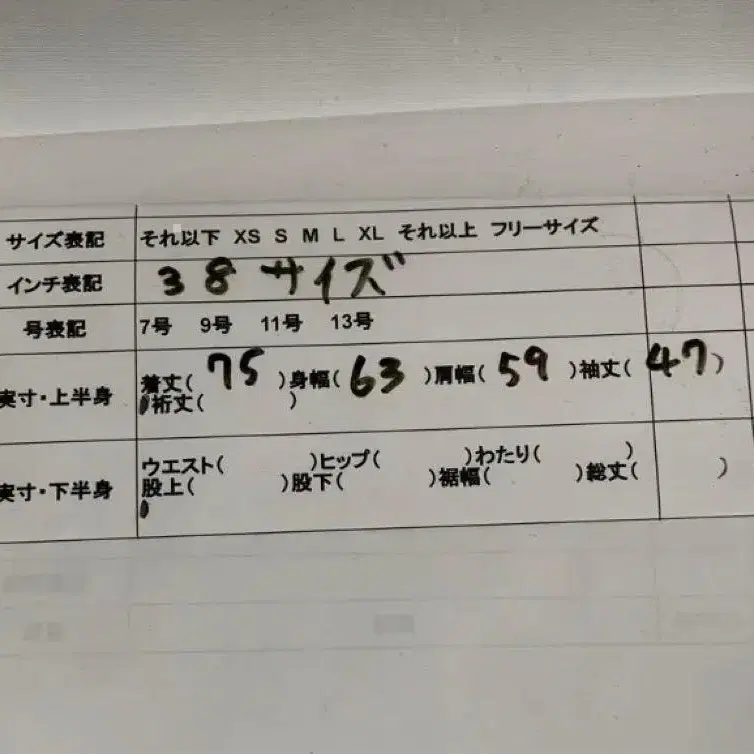 サイズ表記 それ以下 XS S M L XL それ以上 フリーサイズ
インチ表記 38サイズ
号表記 7号 9号 11号 13号
実寸・上半身 着丈( 75 )身幅( 63 )肩幅( 59 )袖丈( 47 )
裄丈( )
実寸・下半身 ウエスト( )ヒップ( )わたり( )
股上( )股下( )裾幅( )総丈( )